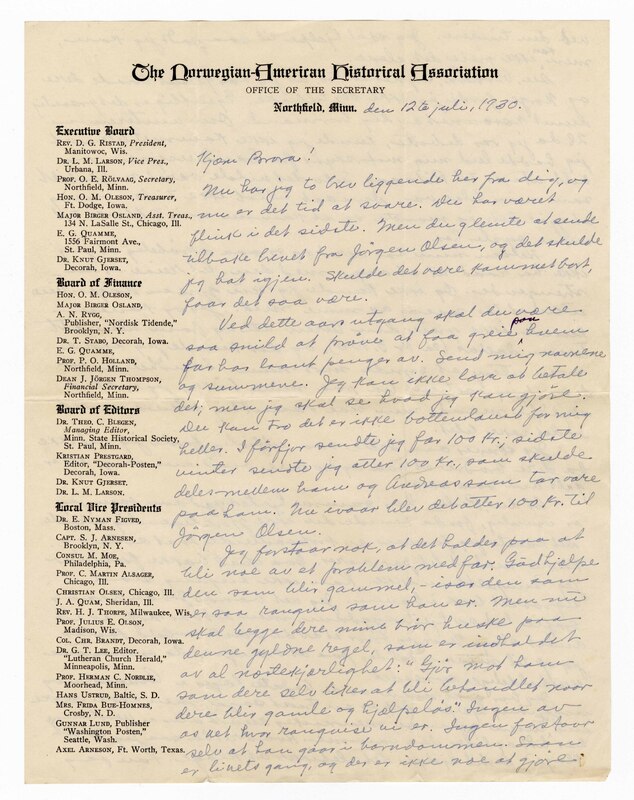 The Norwegian-American Historical Association
OFFICE OF THE SECRETARY
Northfield, Minn. den 12te juli, 1930.
Executive Board
REV. D. G. RISTAD, President,
Manitowoc, Wis.
DR. L. M. LARSON, Vice Pres.,
Urbana, Ill.
PROF. O. E. RÖLVAAG, Secretary,
Northfield, Minn.
HON. O. M. OLESON, Treasurer,
Ft. Dodge, Iowa.
MAJOR BIRGER OSLAND, Asst. Treas.,
134 N. LaSalle St., Chicago, Ill.
E. G. QUAMME,
1556 Fairmont Ave.,
St. Paul, Minn.
DR. KNUT GJERSET,
Decorah, Iowa.
Board of Finance
HON. O. M. OLESON,
MAJOR BIRGER OSLAND,
A. N. RYGG,
Publisher, "Nordisk Tidende,"
Brooklyn, N. Y.
DR. T. STABO, Decorah, Iowa.
E. G. QUAMME,
PROF. P. O. HOLLAND,
DEAN J. JÖRGEN THOMPSON,
Financial Secretary,
Northfield, Minn.
Board of Editors
DR. THEO. C. BLEGEN,
Managing Editor,
Minn. State Historical Society,
St. Paul, Minn.
KRISTIAN PRESTGARD,
Editor, "Decorah-Posten,"
Decorah, Iowa.
DR. KNUT GJERSET.
DR. L. M. LARSON.
Local Vice Presidents
DR. E. NYMAN FIGVED,
Boston, Mass.
CAPT. S. J. ARNESEN,
Brooklyn, N. Y.
CONSUL M. MOE,
Philadelphia, Pa.
PROF. C. MARTIN ALSAGER,
Chicago, Ill.
CHRISTIAN OLSEN, Chicago, Ill.
J. A. QUAM, Sheridan, Ill.
REV. H. J. THORPE, Milwaukee, Wis.
PROF. JULIUS E. OLSON,
Madison, Wis.
COL. CHR. BRANDT, Decorah, Iowa.
DR. G. T. LEE, Editor,
"Lutheran Church Herald,"
Minneapolis, Minn.
PROF. HERMAN C. NORDLIE,
Moorhead, Minn.
HANS USTRUD, Baltic, S. D.
MRS. FRIDA BUE-HOMNES,
Crosby, N. D.
GUNNAR LUND, Publisher
"Washington Posten,"
Seattle, Wash.
AXEL ARNESON, Ft. Worth, Texas.
Kjære Brora!
Nu har jeg to brev liggende her fra dig, og
nu er det tid at svare. Du har været
flink i det sidste. Men du glemte at sende
tilbake brevet fra Jörgen Olsen, og det skulde
jeg hat igjen. Skulde det være kommet bort,
faar det saa være.
Ved dette aars utgang skal du være
saa snild at pröve at faa greie paa hvem
far har laant penger av. Send mig navnene
og summene. Jeg kan ikke love at betale
det; men jeg skal se hvad jeg kan gjöre.
Du kan tro det er ikke bottenlaust for mig
heller. I förfjor sendte jeg far 100 kr., sidste
vinter sendte jeg atter 100 kr., som skulde
deles mellem ham og Andreas som tar vare
paa ham. Nu ivaar blev det atter 100 kr. til
Jörgen Olsen.
Jeg forstaar nok, at det holder paa at
bli noe av et problem med far. Gud hjælpe
den som blir gammel, – især den som
er saa ranguis som han er. Men nu
skal begge dere mine brör huske paa
denne gyldne regel, som er indholdet
av al næstekjærlighet: "Gjör mot ham
som dere selv liker at bli behandlet naar
dere blir gamle og hjælpelös." Ingen av
os vet hvor ranguise vi er. Ingen forstaar
selv at han gaar i barndommen. Saan
er livets gang, og der er ikke noe at gjöre